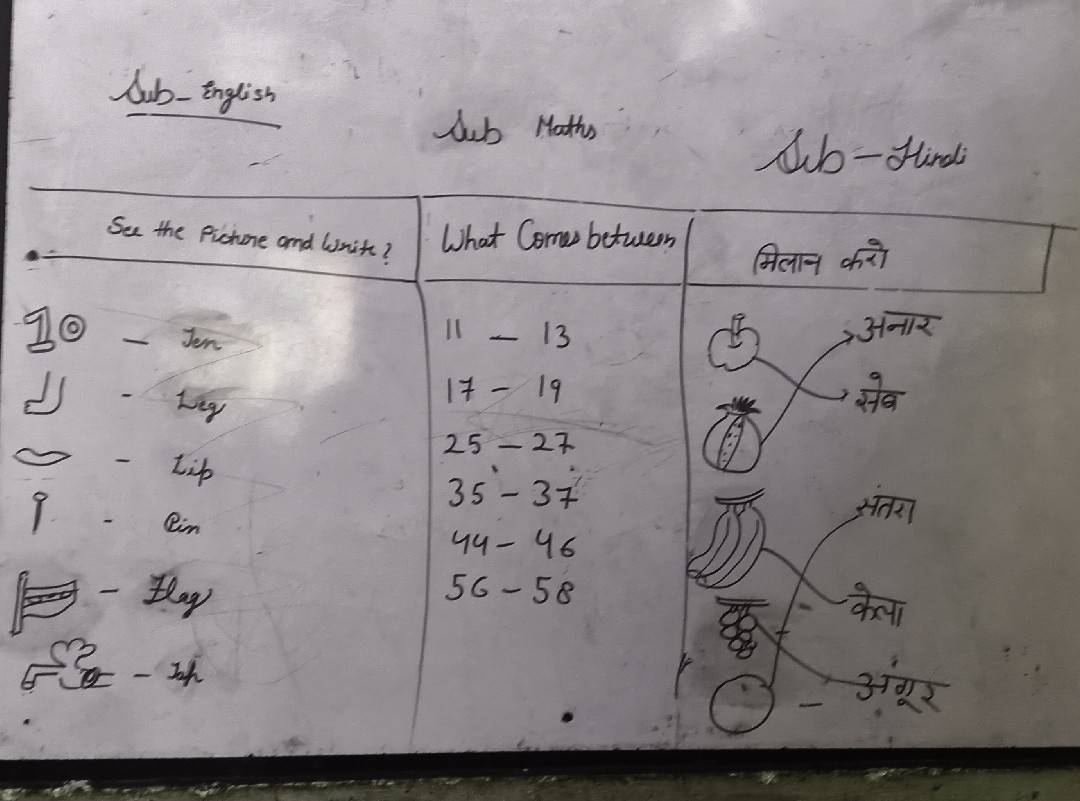 Sub - English
See the Picture and Write?
10 - Ten
- Leg
- Lip
- Pin
- Flag
- Tap
Sub Maths
What Comes between
11 - 13
17 - 19
25 - 27
35 - 37
44 - 46
56 - 58
Sub - Hindi
मिलान करो
अनार
सेब
संतरा
केला
अंगूर